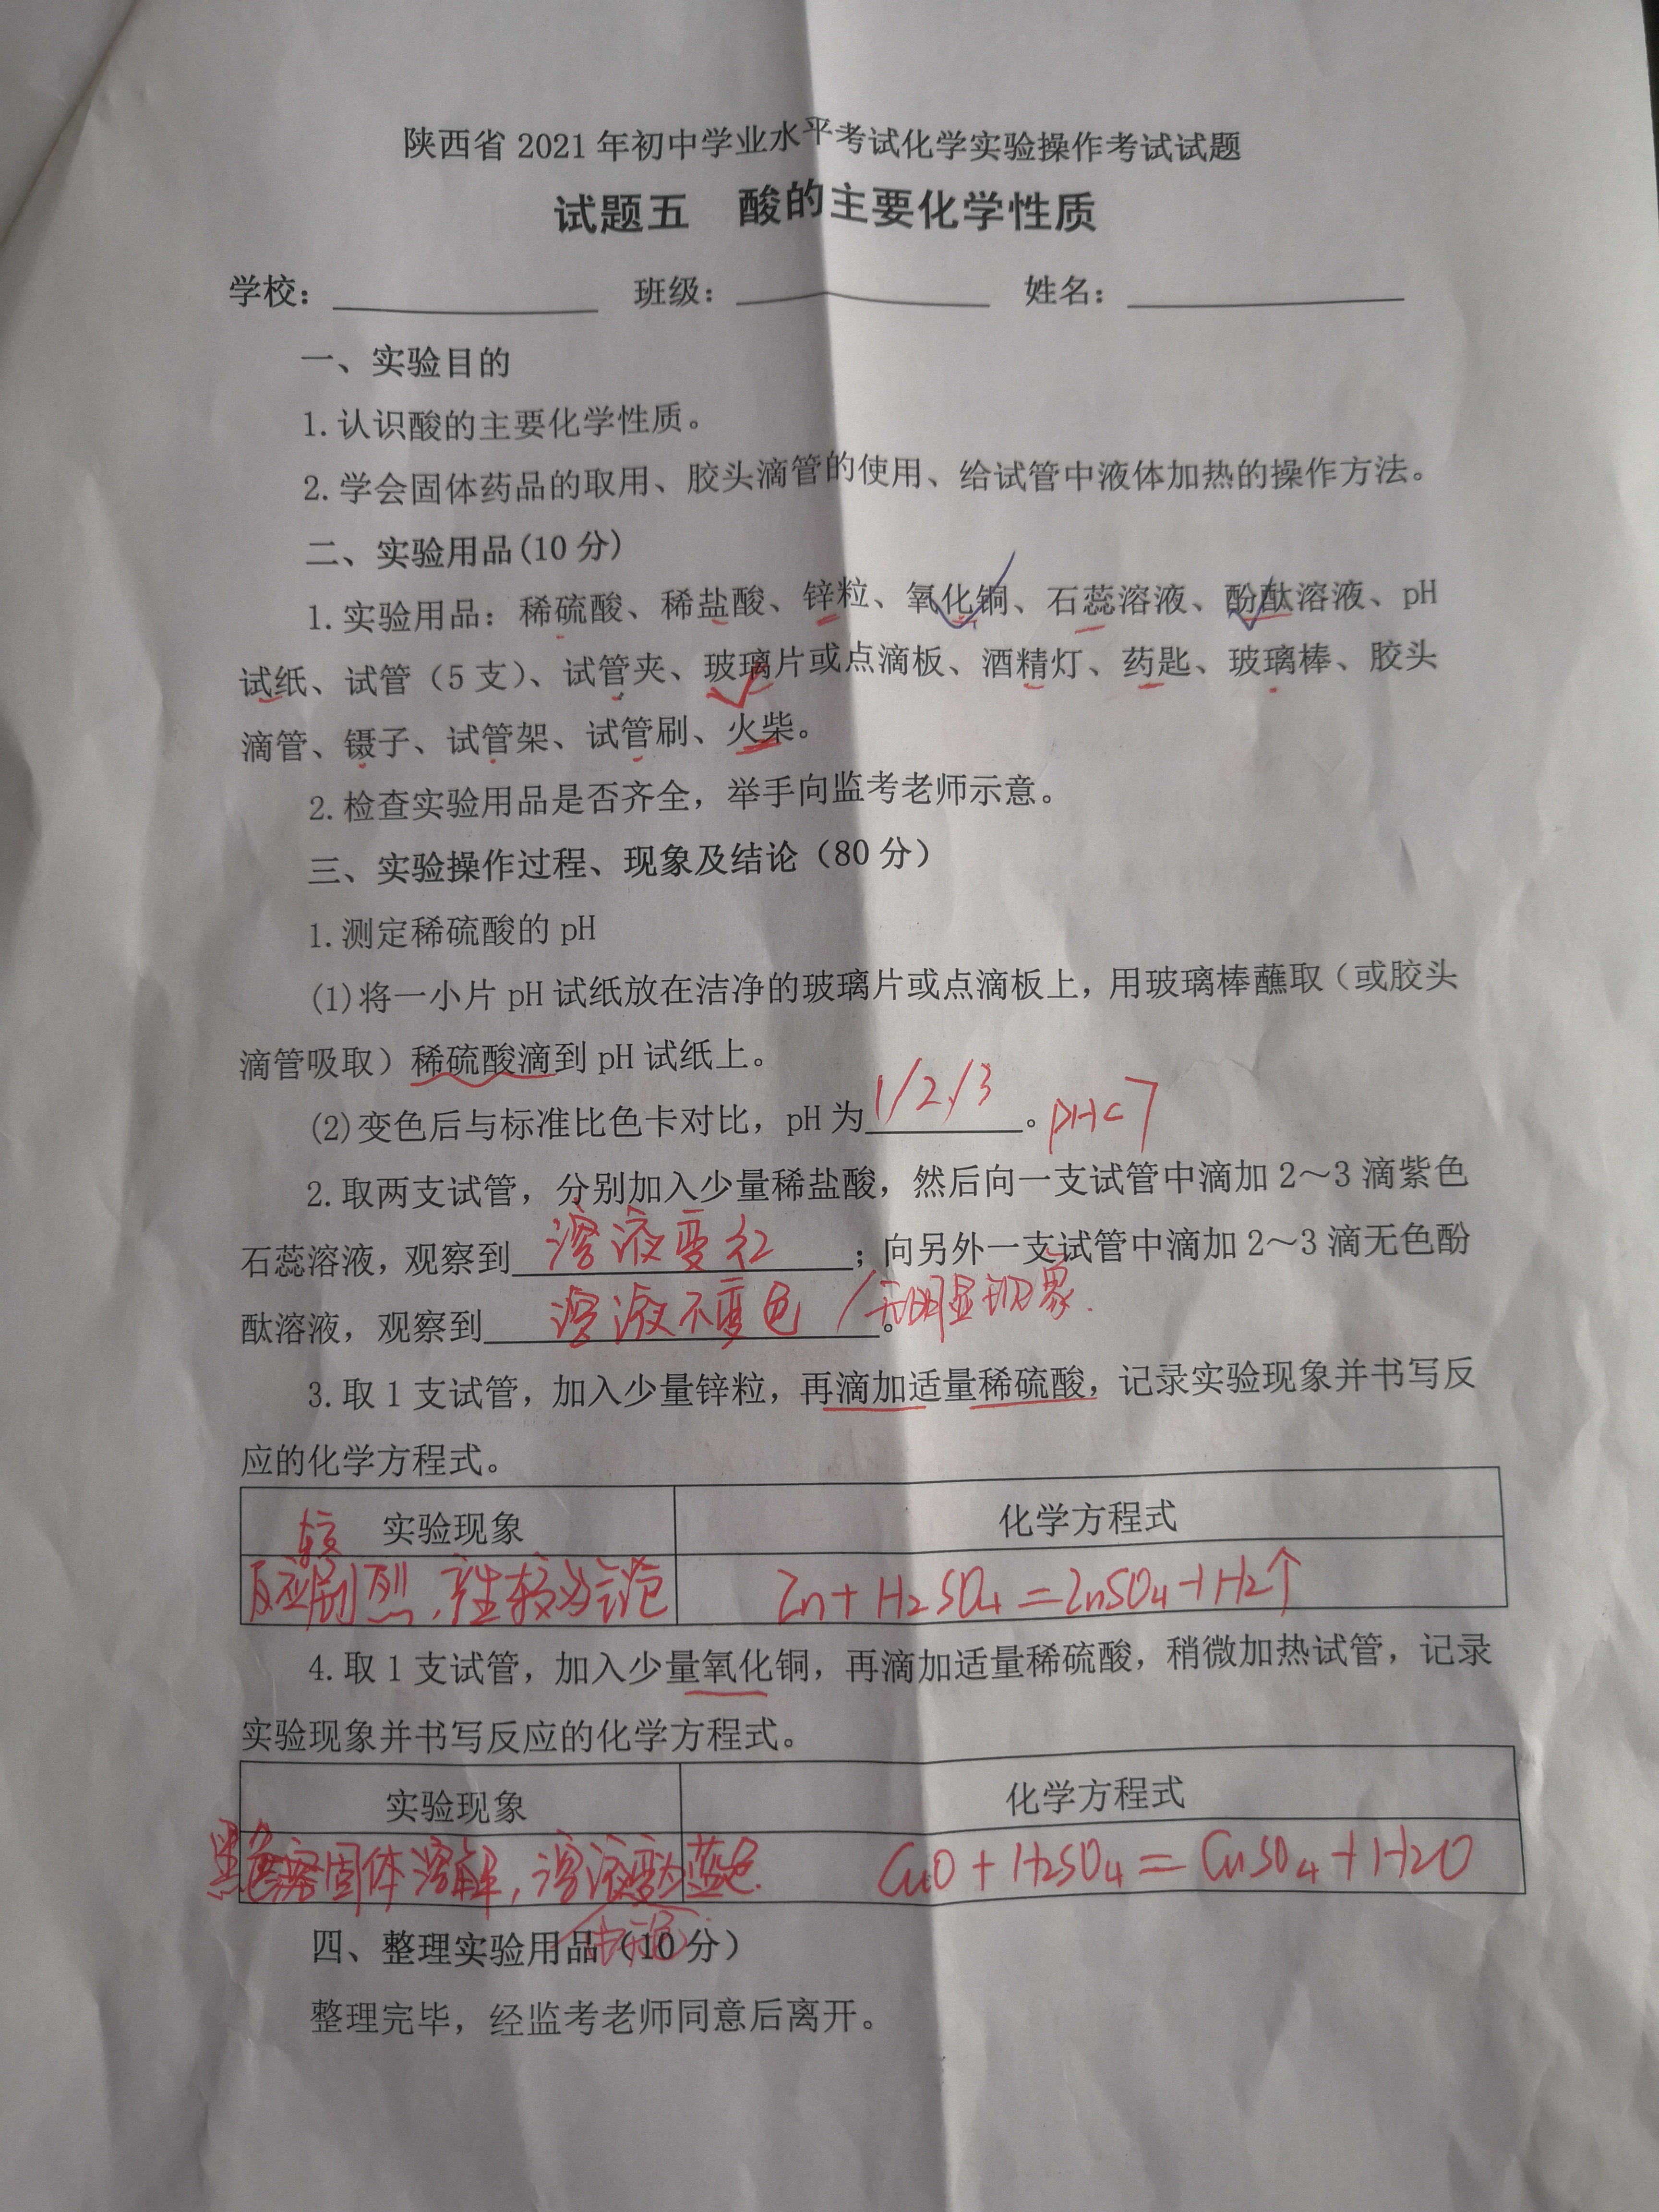 陕西省 2021 年初中学业水平考试化学实验操作考试试题
试题五 酸的主要化学性质
学校：__________ 班级：__________ 姓名：__________
一、实验目的
1.认识酸的主要化学性质。
2.学会固体药品的取用、胶头滴管的使用、给试管中液体加热的操作方法。
二、实验用品(10 分)
1.实验用品：稀硫酸、稀盐酸、锌粒、氧化铜、石蕊溶液、酚酞溶液、pH
试纸、试管（5 支）、试管夹、玻璃片或点滴板、酒精灯、药匙、玻璃棒、胶头
滴管、镊子、试管架、试管刷、火柴。
2.检查实验用品是否齐全，举手向监考老师示意。
三、实验操作过程、现象及结论（80 分）
1.测定稀硫酸的 pH
(1)将一小片 pH 试纸放在洁净的玻璃片或点滴板上，用玻璃棒蘸取（或胶头
滴管吸取）稀硫酸滴到 pH 试纸上。
(2)变色后与标准比色卡对比，pH 为1/2/3。pH<7
2.取两支试管，分别加入少量稀盐酸，然后向一支试管中滴加 2～3 滴紫色
石蕊溶液，观察到溶液变红；向另外一支试管中滴加 2～3 滴无色酚
酞溶液，观察到溶液不变色/无明显现象。
3.取 1 支试管，加入少量锌粒，再滴加适量稀硫酸，记录实验现象并书写反
应的化学方程式。
实验现象 化学方程式
较
反应剧烈，产生较多气泡 Zn+H₂SO₄=ZnSO₄+H₂↑
4.取 1 支试管，加入少量氧化铜，再滴加适量稀硫酸，稍微加热试管，记录
实验现象并书写反应的化学方程式。
实验现象 化学方程式
黑色固体溶解，溶液变为蓝色. CuO+H₂SO₄=CuSO₄+H₂O
四、整理实验用品（10 分）
整理完毕，经监考老师同意后离开。